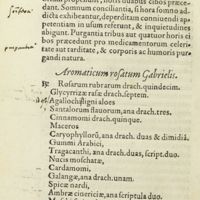 dicta exhibeantur, deperditam coniuendi appe
tentiam in usum referunt, & inquietudines
abigunt. Purgantia tribus aut quatuor horis ci
bos præcedant pro medicamentorum celeri-
tate aut tarditate, & corporis ac humoris pur
gandi natura.
Aromaticum rosatum Gabrielis.
Rosarum rubrarum drach. quindecim.
Glycyrrizæ rasæ drach. septem.
Agallochi ligni aloes
Santalorum flauorum, ana drach. tres.
Cinnamomi drach. quinque.
Maceros
Caryophyllorū, ana drach. duas & dimidiā.
Gummi Arabici,
Tragacanthi, ana drach. duas, script. duo.
Nucis moschatæ,
Cardamomi,
Galangæ, ana drach. unam.
Spicæ nardi,
Ambræ cinericiæ, ana scriptula duo.